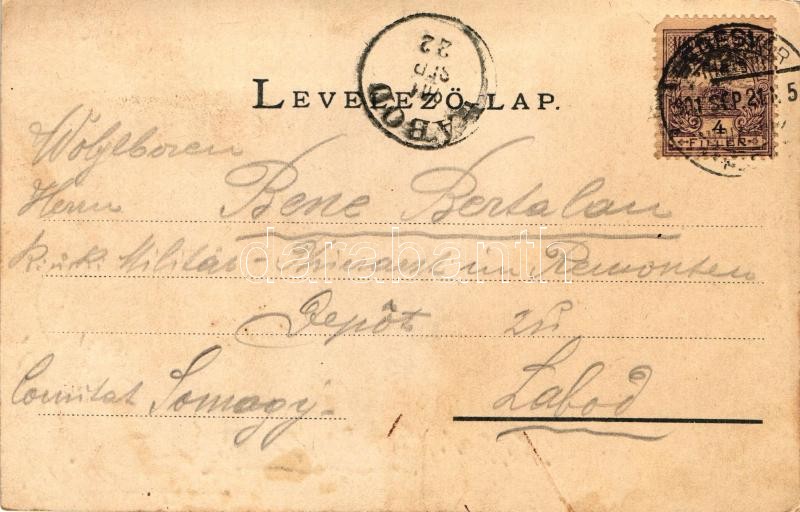 LEVELEZŐ-LAP.
LABOD
SEP
22
901 SEP. 21
4
FILLÉR
Wolgelboren
Herrn Bene Bertalan
K.u.K. Militär- im Remonten
Depôt zu
Comitat Somogy. Labod
darabanth